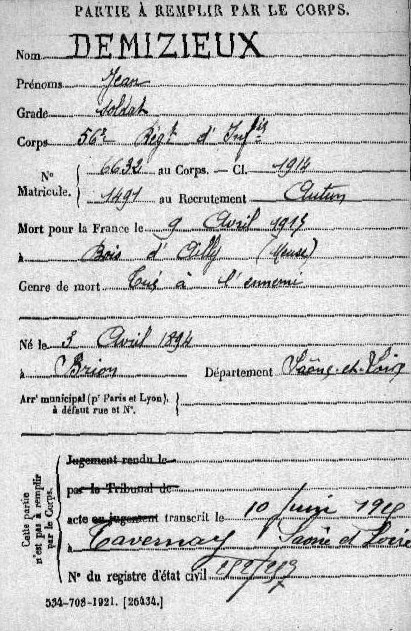 PARTIE À REMPLIR PAR LE CORPS.
Nom DEMIZIEUX
Prénoms Jean
Grade soldat
Corps 56e Régt d'Infie
N° Matricule. { 6632 au Corps. — Cl. 1914
1491 au Recrutement Autun
Mort pour la France le 9 Avril 1915
à Bois d'Ailly (Meuse)
Genre de mort Tué à l'ennemi
Né le 3 Avril 1894
à Brion Département Saône-et-Loire
Arrt municipal (pr Paris et Lyon), à défaut rue et N°. {
Cette partie n'est pas à remplir par le Corps.
Jugement rendu le
par le Tribunal de
acte en jugement transcrit le 10 Juin
à Tavernay Saône et Loire
N° du registre d'état civil
534-708-1921. [26434.]